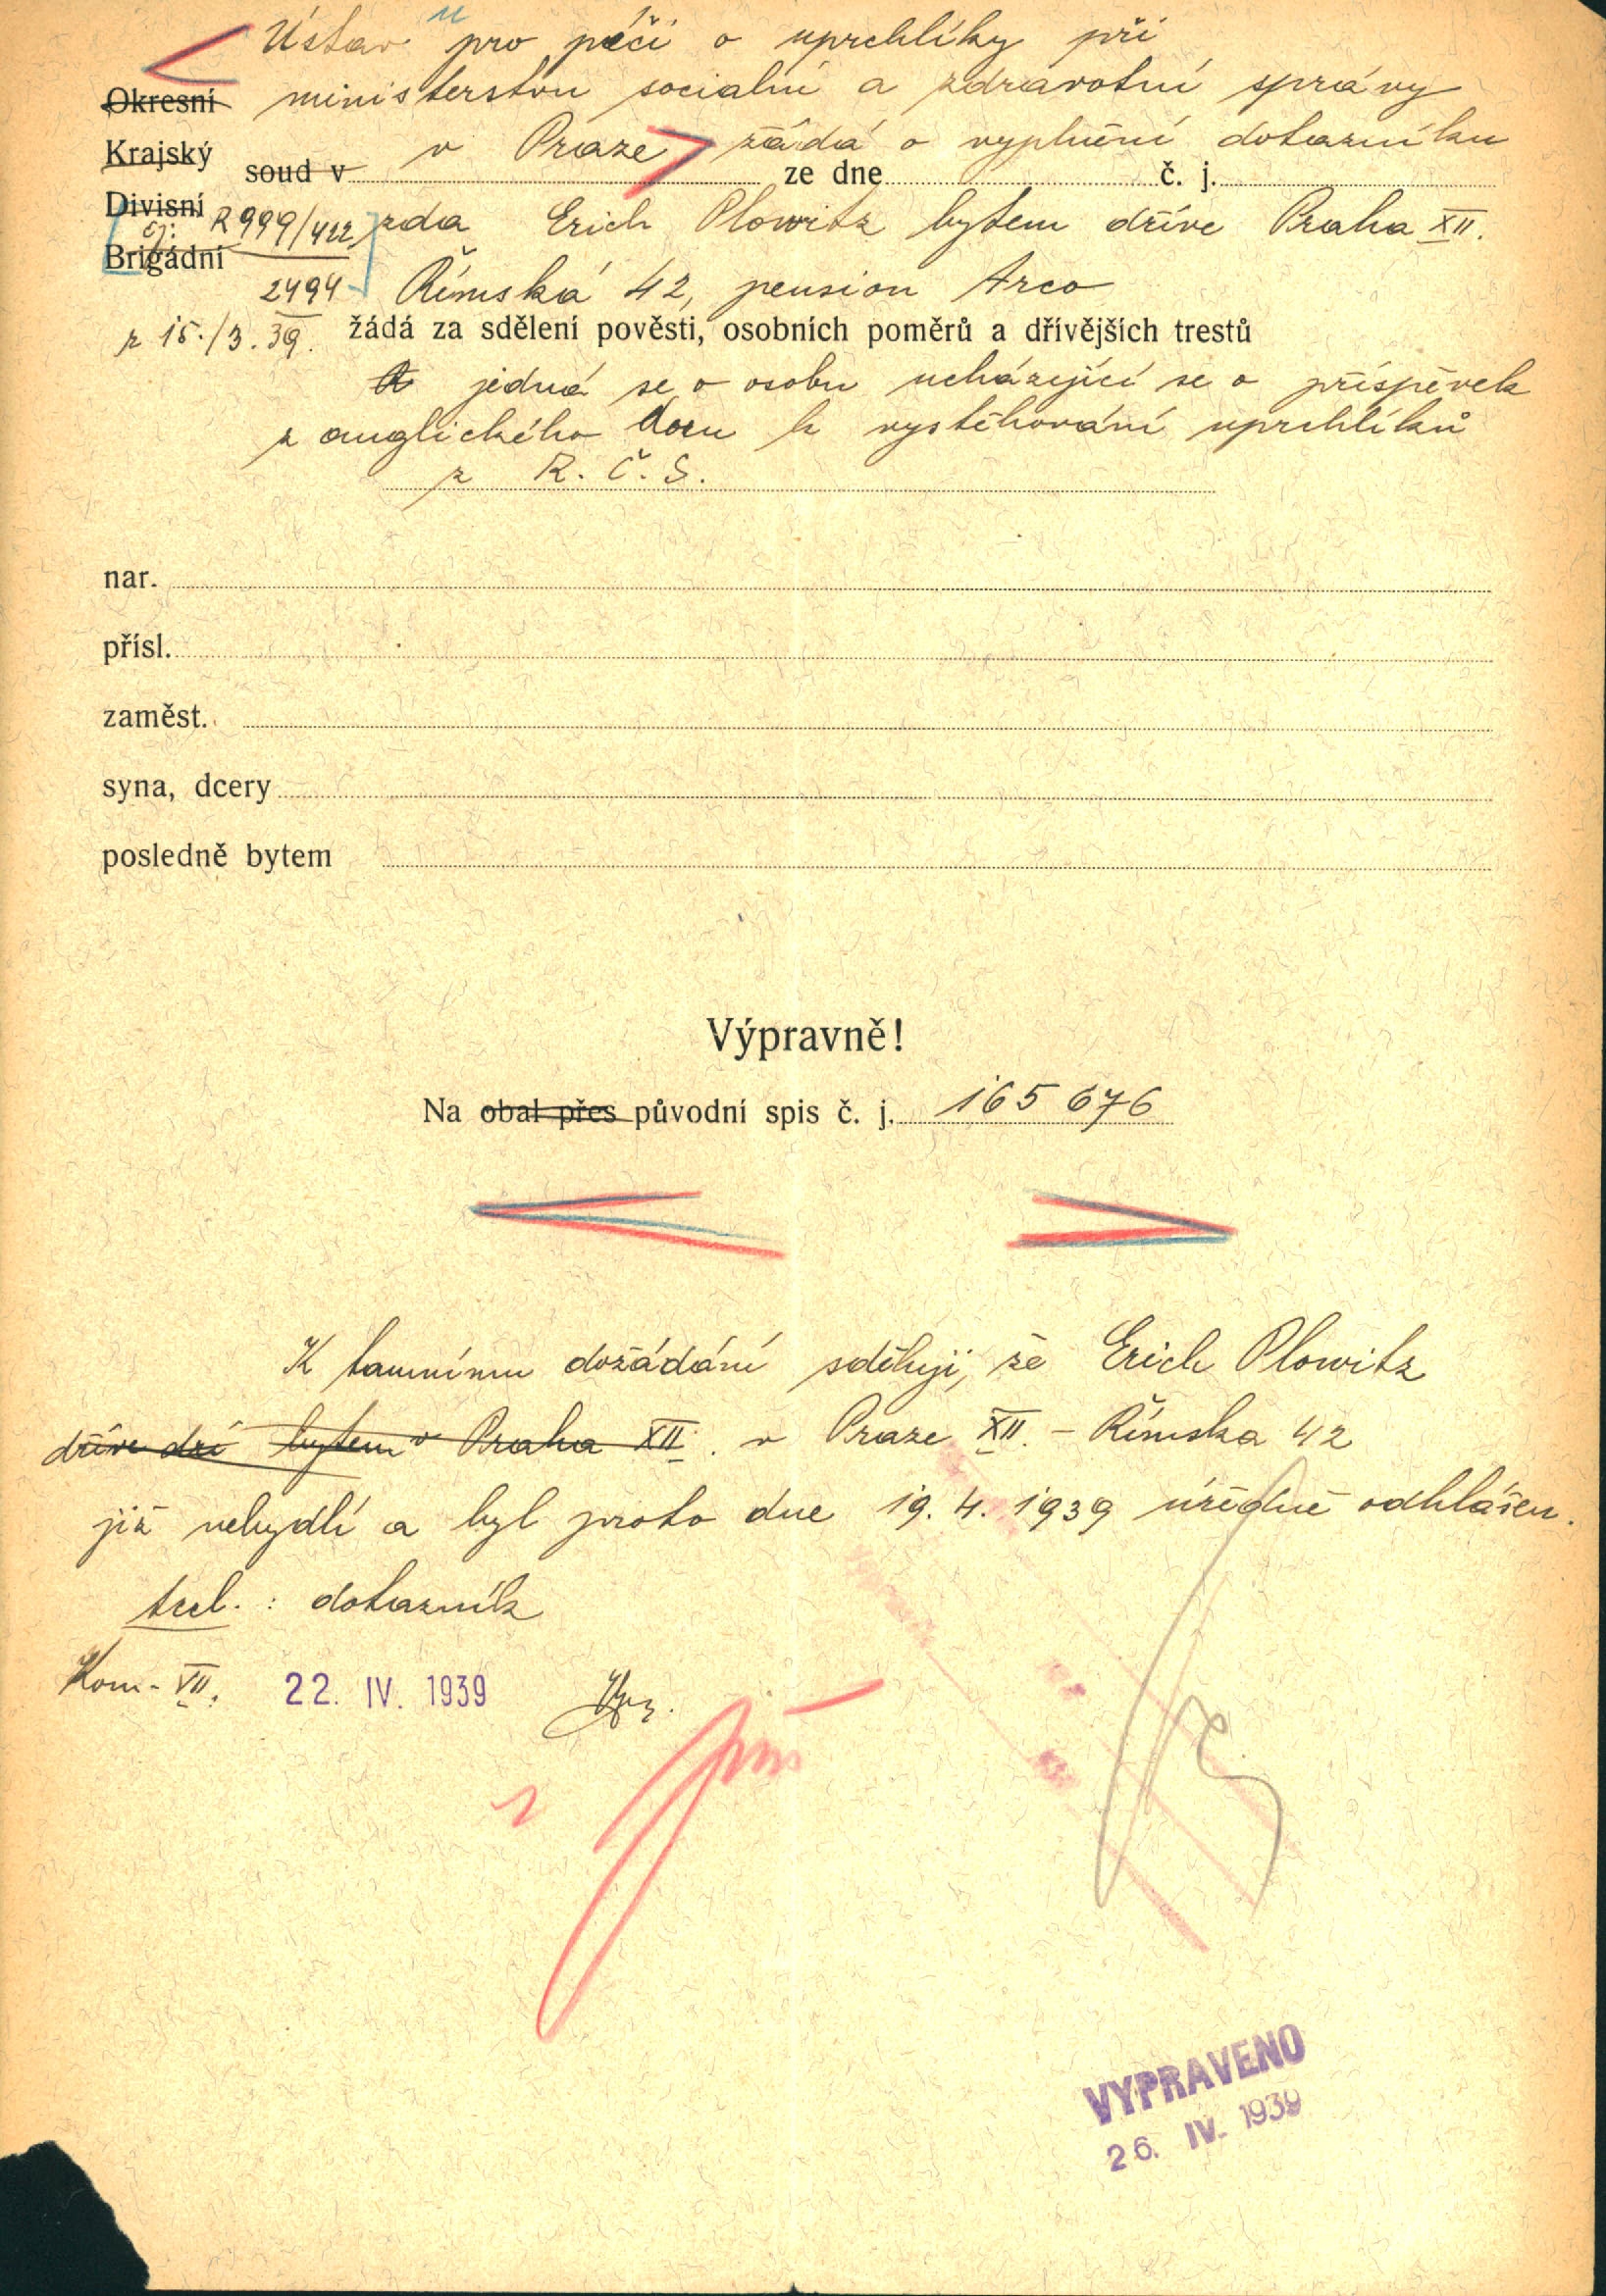 Ústav pro péči o uprchlíky při
Okresní ministerstvu socialní a zdravotní správy
Krajský
soud v v Praze žádá o vyplnění dotazníku
ze dne č. j.
Divisní
čj: R999/422 zda Erich Plowitz bytem dříve Praha XII.
Brigádní
2494 Římská 42, pension Arco
z 15./3. 39. žádá za sdělení pověsti, osobních poměrů a dřívějších trestů
jedná se o osobu ucházející se o příspěvek
z anglického daru k vystěhování uprchlíků
z R. Č. S.
nar.
přísl.
zaměst.
syna, dcery
posledně bytem
Výpravně!
Na obal přes původní spis č. j. 165 676
K tamnímu dožádání sděluji, že Erich Plowitz
dříve bytem v Praha XII. v Praze XII. - Římska 42
již nebydlí a byl proto dne 19. 4. 1939 úředně odhlášen.
: dotazník
Kom- VII. 22. IV. 1939
VYPRAVENO
26. IV. 1939